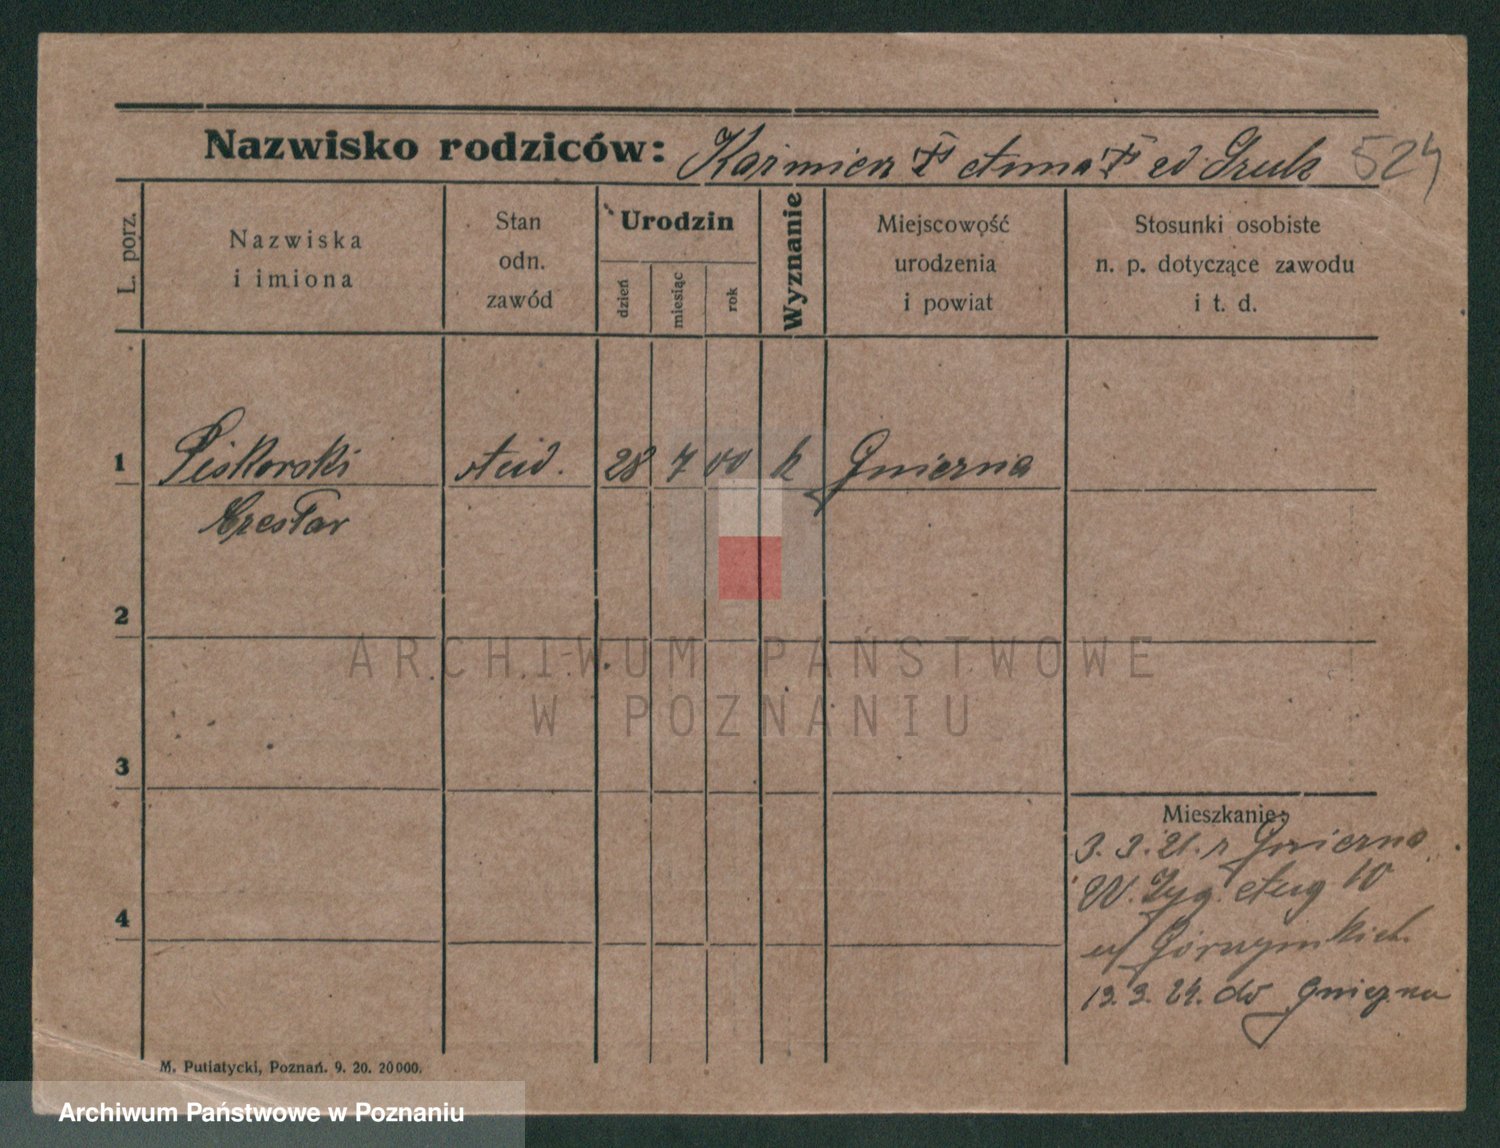 Nazwisko rodziców: Kazimierz Anna 524
L. porz.
Nazwiska
i imiona
Stan
odn.
zawód
Urodzin
dzień
miesiąc
rok
Wyznanie
Miejscowość
urodzenia
i powiat
Stosunki osobiste
n. p. dotyczące zawodu
i t. d.
1 Piskorski stud. 28 7 00 k Gniezna
Czesław
2
3
4
Mieszkanie:
3. 3. 21. z Gniezna
W. Zyg. Aug 10
13. 3. 24. do Gniezna
M. Putiatycki, Poznań. 9. 20. 20000.
ARCHIWUM PAŃSTWOWE
W POZNANIU
Archiwum Państwowe w Poznaniu